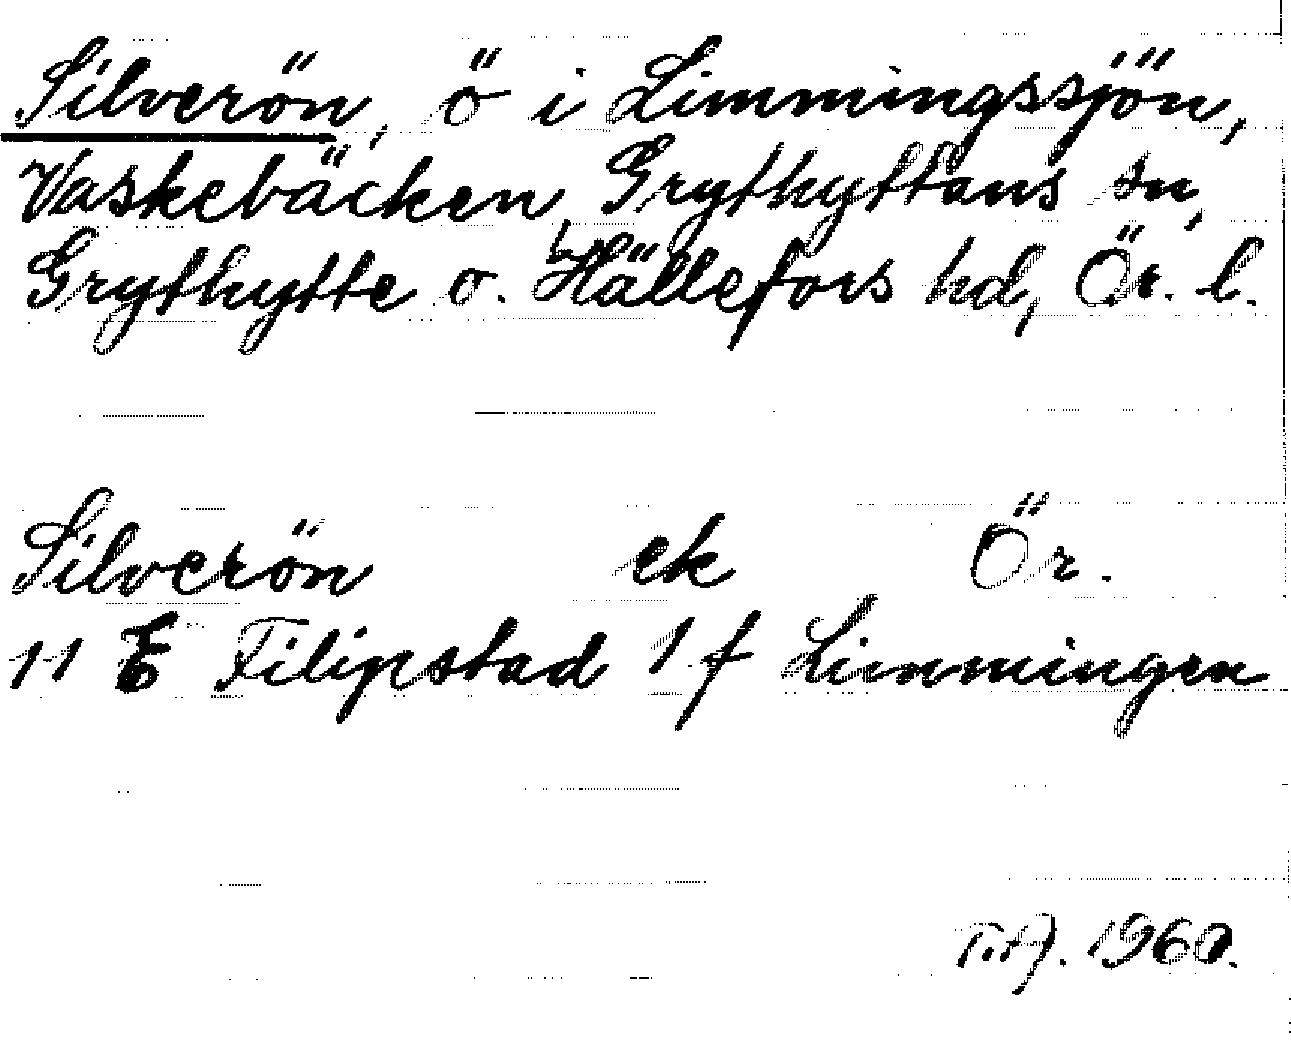 Silverön, ö i Limmingssjön,
Vaskebäcken, Grythyttans sn,
Grythytte o. Hällefors hd, Ör. l.
Silverön ek Ör.
11 E Filipstad 1 f Limmingen
1960.